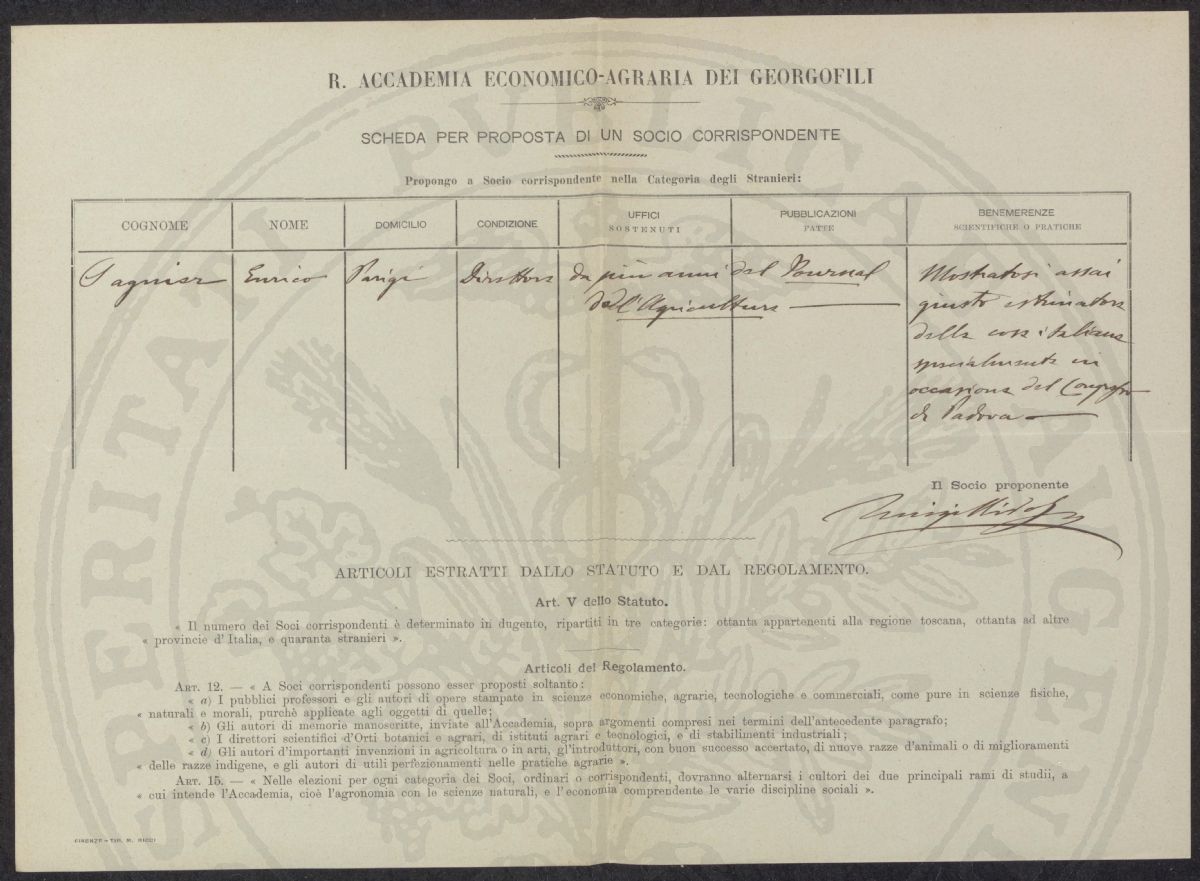 R. ACCADEMIA ECONOMICO-AGRARIA DEI GEORGOFILI
SCHEDA PER PROPOSTA DI UN SOCIO CORRISPONDENTE
Propongo a Socio corrispondente nella Categoria degli Stranieri:
COGNOME NOME DOMICILIO CONDIZIONE UFFICI SOSTENUTI PUBBLICAZIONI FATTE BENEMERENZE SCIENTIFICHE O PRATICHE
Sagnier Enrico Parigi Direttore da più anni del Journal
dell'Agriculture
Mostratosi assai
giusto estimatore
delle cose italiane
specialmente in
occasione del Congresso
di Padova
Il Socio proponente
Luigi Ridolfi
ARTICOLI ESTRATTI DALLO STATUTO E DAL REGOLAMENTO.
Art. V dello Statuto.
« Il numero dei Soci corrispondenti è determinato in dugento, ripartiti in tre categorie: ottanta appartenenti alla regione toscana, ottanta ad altre
« provincie d'Italia, e quaranta stranieri ».
Articoli del Regolamento.
ART. 12. — « A Soci corrispondenti possono esser proposti soltanto:
« a) I pubblici professori e gli autori di opere stampate in scienze economiche, agrarie, tecnologiche e commerciali, come pure in scienze fisiche,
« naturali e morali, purchè applicate agli oggetti di quelle;
« b) Gli autori di memorie manoscritte, inviate all'Accademia, sopra argomenti compresi nei termini dell'antecedente paragrafo;
« c) I direttori scientifici d'Orti botanici e agrari, di istituti agrari e tecnologici, e di stabilimenti industriali;
« d) Gli autori d'importanti invenzioni in agricoltura o in arti, gl'introduttori, con buon successo accertato, di nuove razze d'animali o di miglioramenti
« delle razze indigene, e gli autori di utili perfezionamenti nelle pratiche agrarie ».
ART. 15. — « Nelle elezioni per ogni categoria dei Soci, ordinari o corrispondenti, dovranno alternarsi i cultori dei due principali rami di studii, a
« cui intende l'Accademia, cioè l'agronomia con le scienze naturali, e l'economia comprendente le varie discipline sociali ».
FIRENZE - TIP. M. RICCI